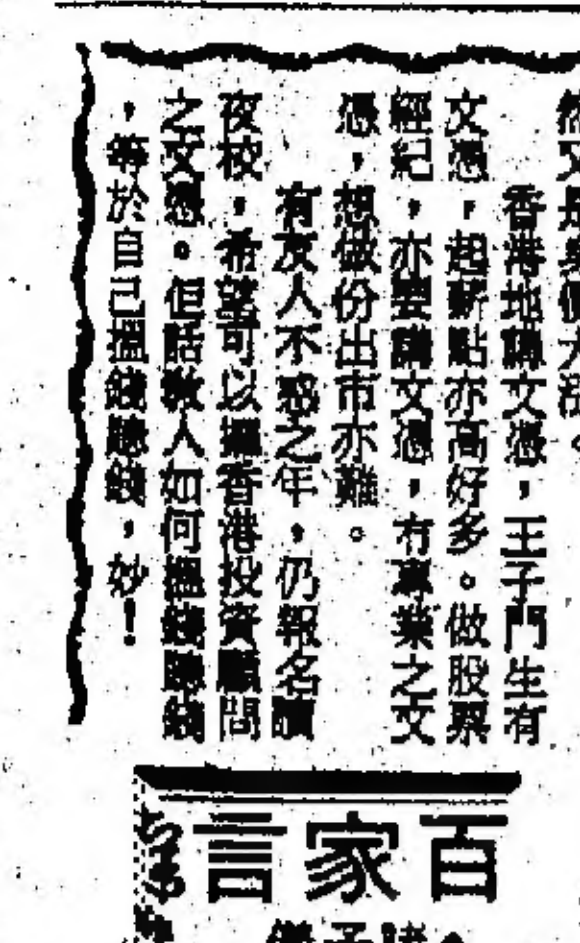 香港地講文憑，王子門生有
文憑，起薪點亦高好多。做股票
經紀，亦要講文憑，有專業之文
憑，想做份出市亦難。
有友人不惑之年，仍報名讀
夜校，希望可以攞香港投資顧問
之文憑。佢話教人如何搵錢聽錢
，等於自己搵錢聽錢，妙！
百家言